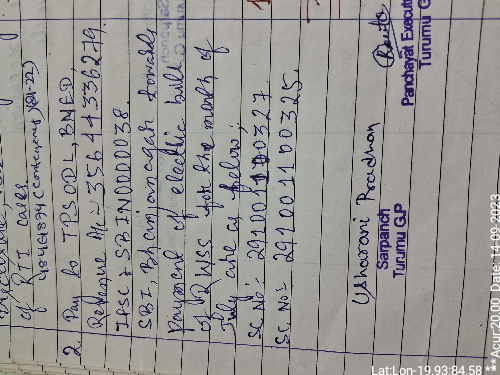 of RTI cases
2. Pay to TPSODL, BMED,
Revenue A/c - 35644336279.
IFSC - SBIN0000038.
SBI, Bhanjanagar towards
Payment of electric bill
of RWSS for the month of
July are as below;
SC No:- 291001100327
SC. No:- 291001100325.
Usharani Pradhan
Sarpanch
Turumu G.P
Panchayat Execut
Turumu G
Lat:Lon-19.93:84.58
**Acur20.00 Date: 14-09-2023